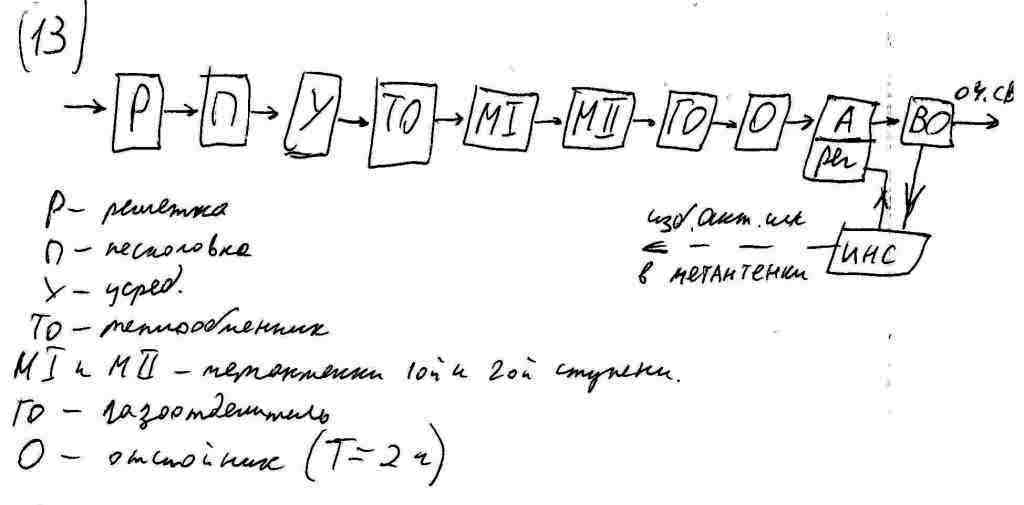 (13)
Р П У ТО МI МII ГО О А ВО оч.св
рег
изб.акт.ил
в метантенки
ИНС
Р – решетка
П – песколовка
У – усред.
ТО – теплообменник
МI и МII – метантенки 1ой и 2ой ступени.
ГО – газоотделитель
О – отстойник (T = 2 ч)